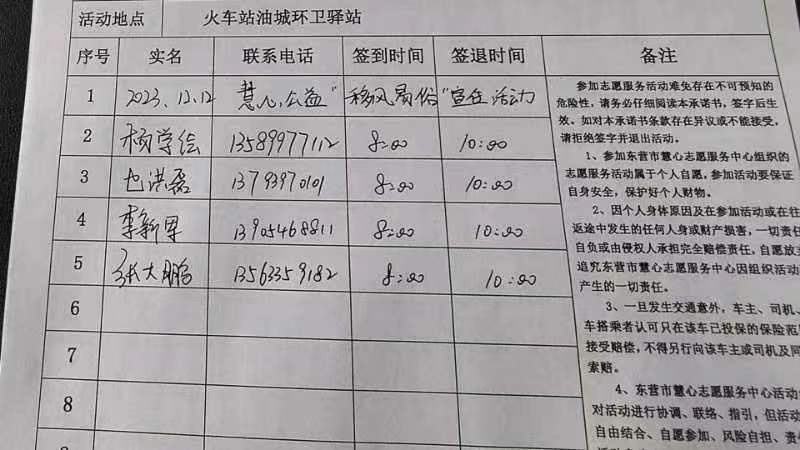 活动地点 火车站油城环卫驿站
序号 实名 联系电话 签到时间 签退时间 备注
1 2023.12.12 慧心公益“移风易俗”宣传活动
2 杨学绘 13589977112 8:00 10:00
3 也洪磊 13793970101 8:00 10:00
4 李新军 13905468811 8:00 10:00
5 张大鹏 13563359182 8:00 10:00
6
7
8
参加志愿服务活动难免存在不可预知的
危险性，请务必仔细阅读本承诺书，签字后生
效。如对本承诺书条款存在异议或不能接受，
请拒绝签字并退出活动。
1、参加东营市慧心志愿服务中心组织的
志愿服务活动属于个人自愿，参加活动要保证
自身安全，保护好个人财物。
2、因个人身体原因及在参加活动或在往
返途中发生的任何人身或财产损害，一切责任
自负或由侵权人承担完全赔偿责任，自愿放
追究东营市慧心志愿服务中心因组织活动
产生的一切责任。
3、一旦发生交通意外，车主、司机、
车搭乘者认可只在该车已投保的保险范
接受赔偿，不得另行向该车主或司机及同
索赔。
4、东营市慧心志愿服务中心活动
对活动进行协调、联络、指引，但活动
自由结合、自愿参加、风险自担、责